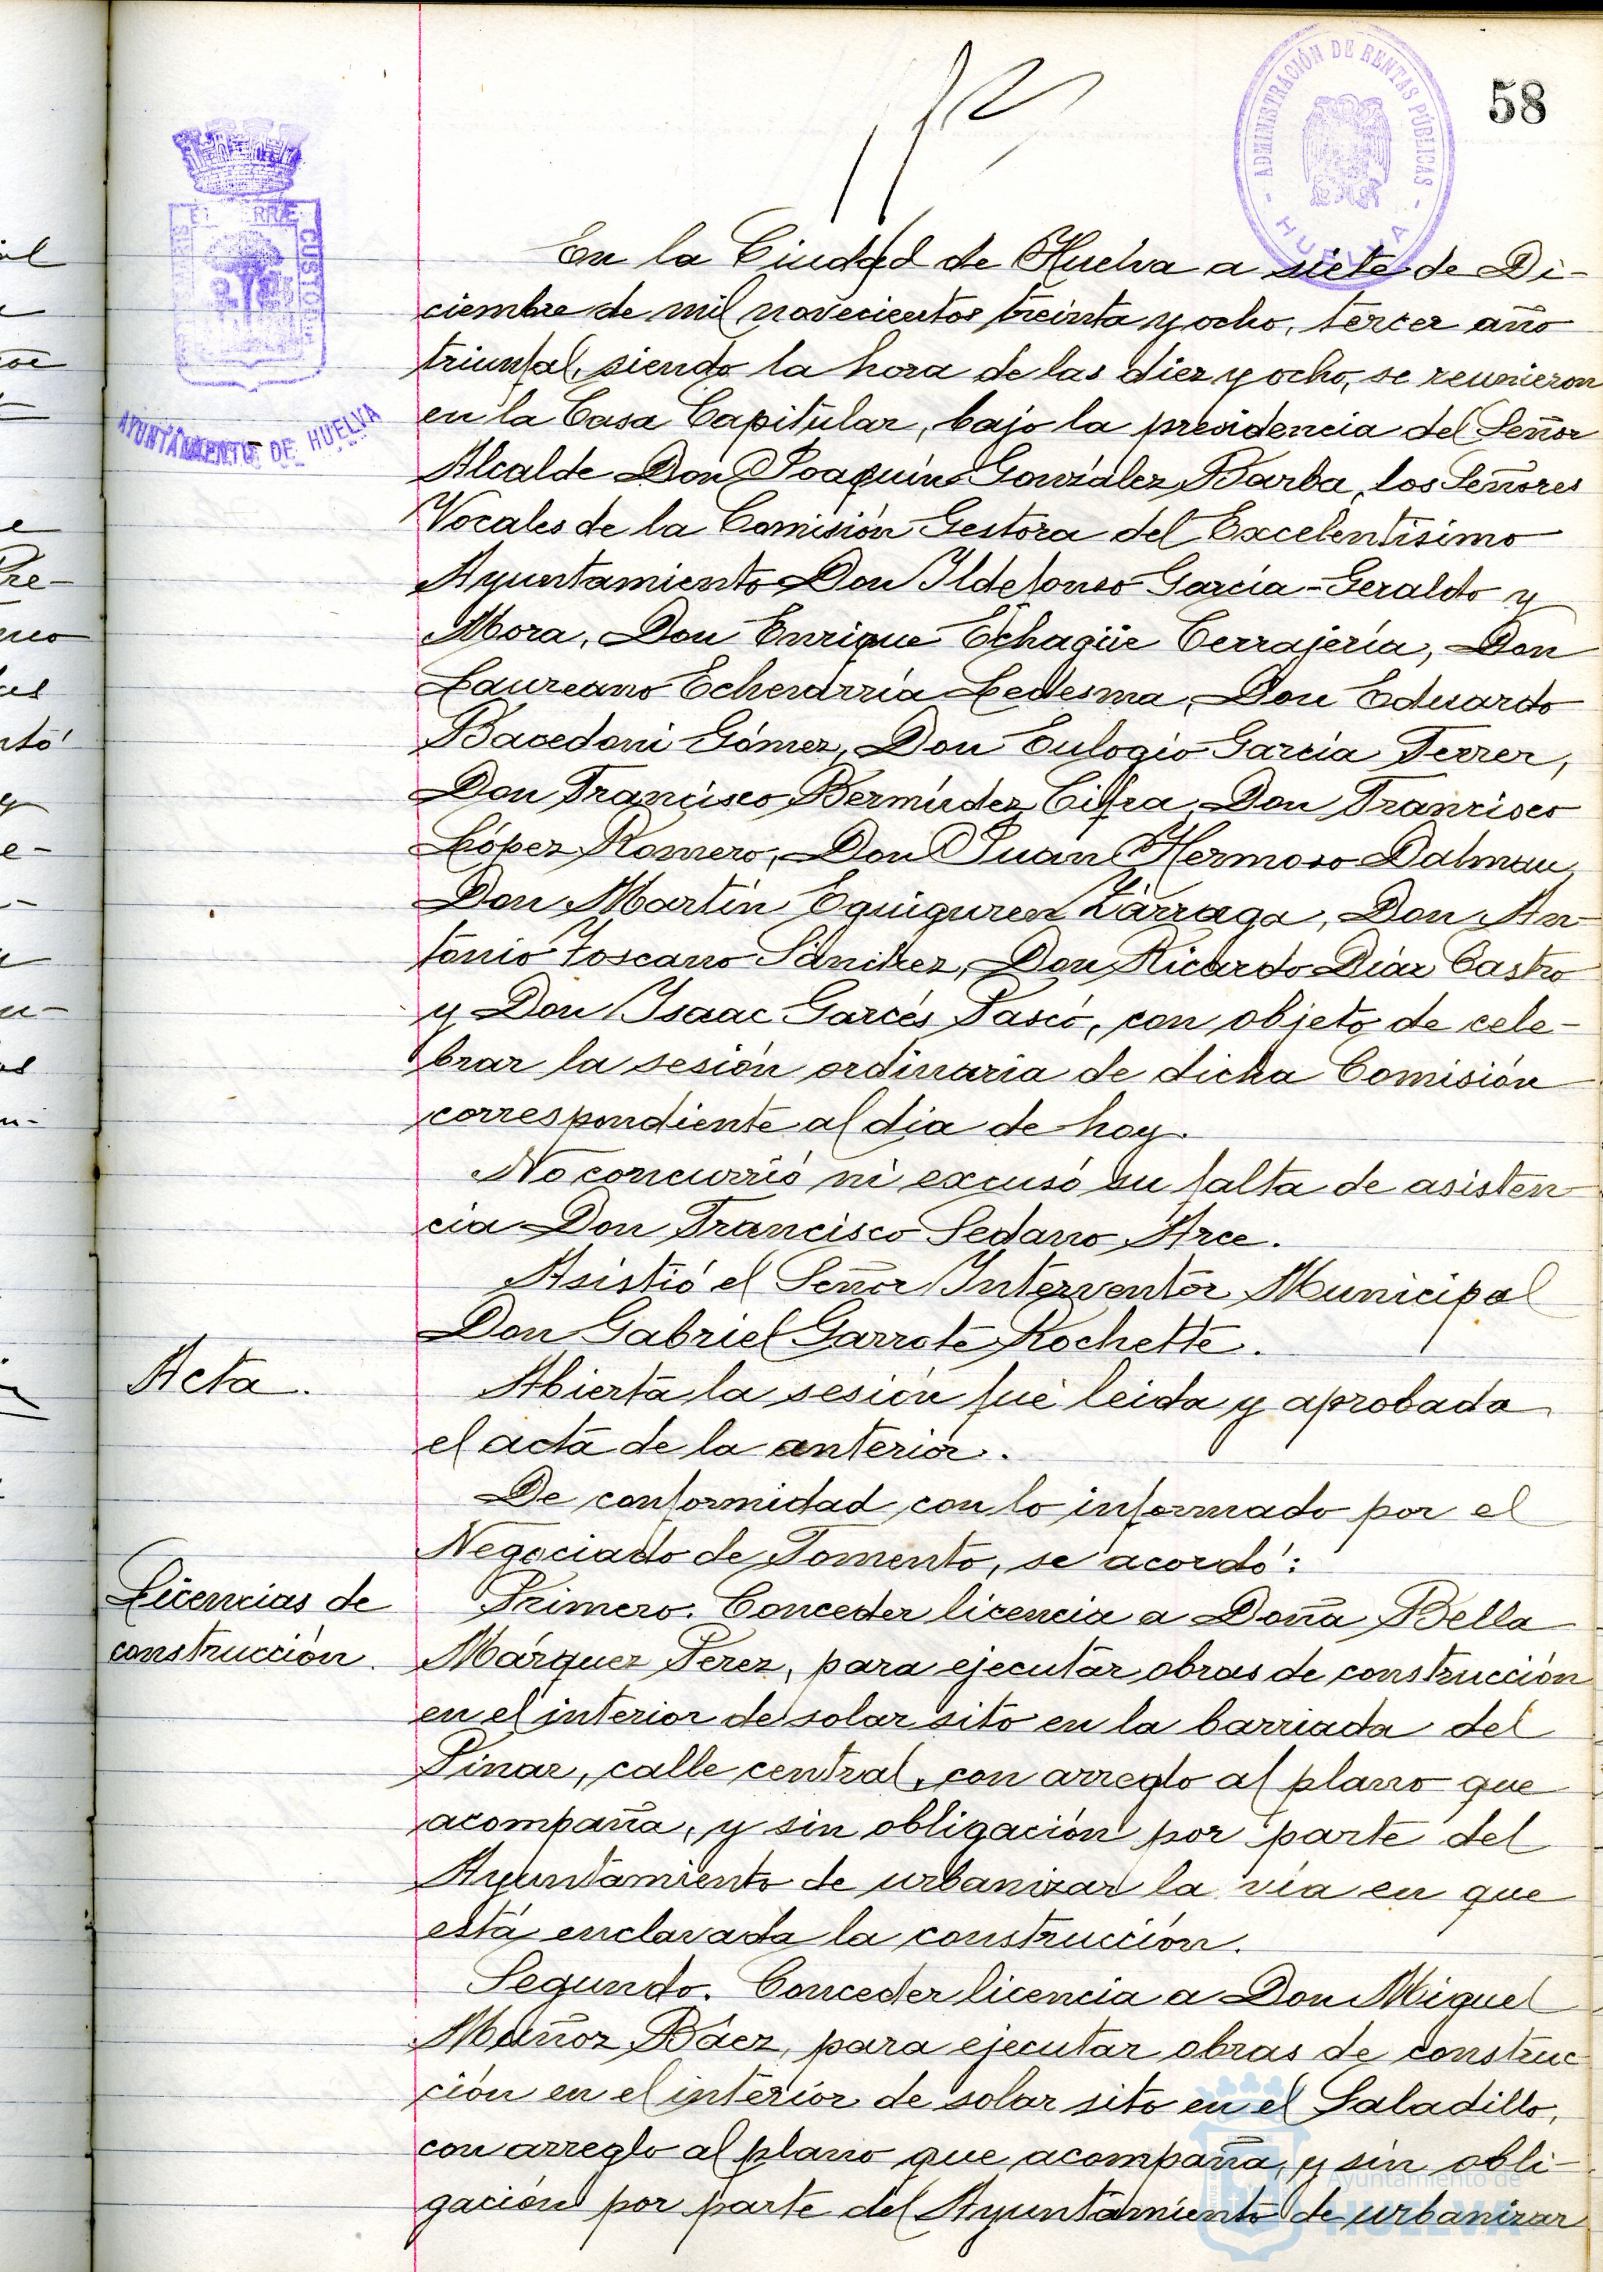 58
ADMINISTRACIÓN DE RENTAS PÚBLICAS
- HUELVA -
CUSTOD
AYUNTAMIENTO DE HUELVA
En la Ciudad de Huelva a siete de Di-
ciembre de mil novecientos treinta y ocho, tercer año
triunfal, siendo la hora de las diez y ocho, se reunieron
en la Casa Capitular, bajo la presidencia del Señor
Alcalde Don Joaquín González Barba, los Señores
Vocales de la Comisión Gestora del Excelentísimo
Ayuntamiento Don Ildefonso García-Geraldo y
Mora, Don Enrique Echagüe Cerrajería, Don
Laureano Echevarría Ledesma, Don Eduardo
Bacedoni Gómez, Don Eulogio García Ferrer,
Don Francisco Bermúdez Cifra, Don Francisco
López Romero, Don Juan Hermoso Dalmau,
Don Martín Eguiguren Zárraga, Don An-
tonio Toscano Sánchez, Don Ricardo Díaz Castro
y Don Isaac Garcés Pascó, con objeto de cele-
brar la sesión ordinaria de dicha Comisión
correspondiente al dia de hoy.
No concurrió ni excusó su falta de asisten-
cia Don Francisco Sedano Arce.
Asistió el Señor Interventor Municipal
Don Gabriel Garrote Rochette.
Acta.
Abierta la sesión fué leida y aprobada
el acta de la anterior.
De conformidad con lo informado por el
Negociado de Fomento, se acordó:
Licencias de
construcción.
Primero. Conceder licencia a Doña Bella
Márquez Perez, para ejecutar obras de construcción
en el interior de solar sito en la barriada del
Pinar, calle central, con arreglo al plano que
acompaña, y sin obligación por parte del
Ayuntamiento de urbanizar la vía en que
está enclavada la construcción.
Segundo. Conceder licencia a Don Miguel
Muñoz Báez, para ejecutar obras de construc-
ción en el interior de solar sito en el Saladillo,
con arreglo al plano que acompaña, y sin obli-
gación por parte del Ayuntamiento de urbanizar
Ayuntamiento de
HUELVA